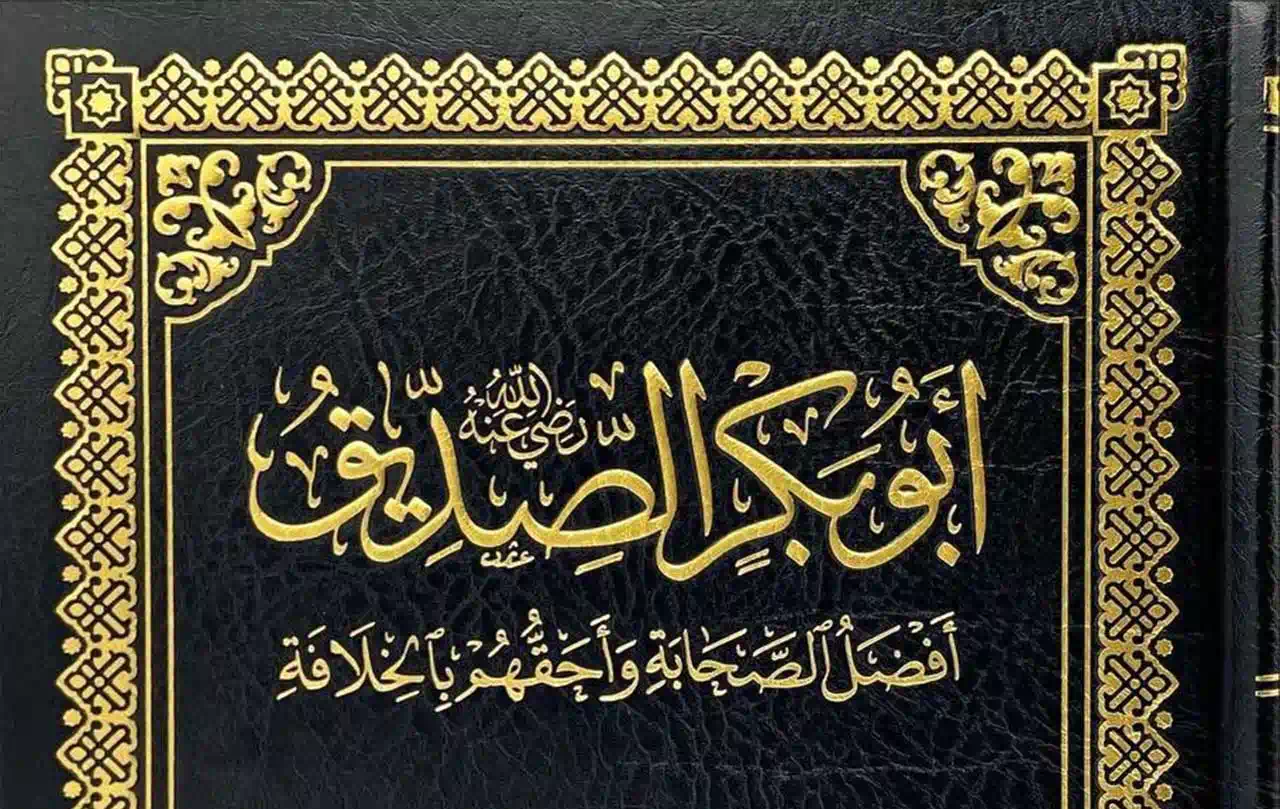 أَبُو بَكْرٍ الصِّدِّيقُ رَضِيَ اللَّهُ عَنْهُ
أَفْضَلُ ٱلصَّحَابَةِ وَأَحَقُّهُمْ بِٱلْخِلَافَةِ